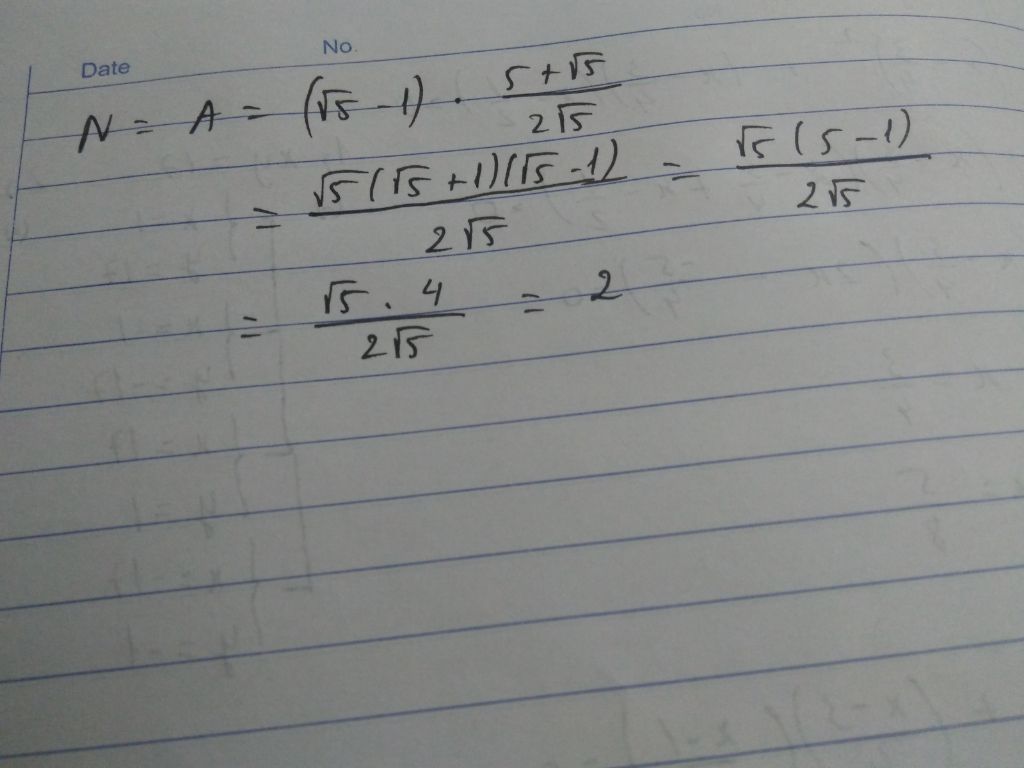 Date No.
N = A = (√5 - 1) . (5 + √5)/(2√5)
= (√5(√5 + 1)(√5 - 1))/(2√5) = (√5(5 - 1))/(2√5)
= (√5 . 4)/(2√5) = 2